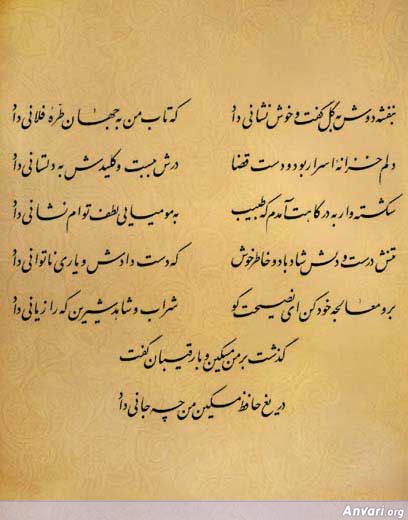 بنفشه دوش به گل گفت و خوش نشانی داد که تاب من به جهان طرهٔ فلانی داد
دلم خزانهٔ اسرار بود و دست قضا درش ببست و کلیدش به دلستانی داد
شکسته وار به درگاهت آمدم که طبیب به مومیایی لطف توام نشانی داد
تنش درست و دلش شاد باد و خاطر خوش که دست دادش و یاری ناتوانی داد
برو معالجه خود کن ای نصیحت گو شراب و شاهد شیرین که را زیانی داد
گذشت بر من مسکین و با رقیبان گفت
دریغ حافظ مسکین من چه جانی داد
Anvari.org